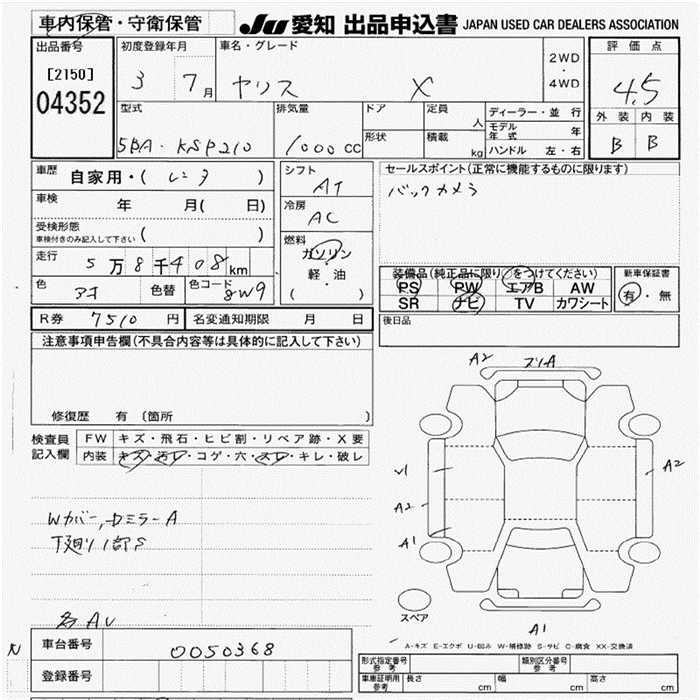 車内保管・守衛保管
JU 愛知 出品申込書 JAPAN USED CAR DEALERS ASSOCIATION
出品番号
[2150]
04352
初度登録年月
3 7月
車名・グレード
ヤリス X
2WD
・
4WD
評価点
4.5
外装 内装
B B
型式
5BA-KSP210
排気量
1000 CC
ドア
形状
定員
人
積載
kg
ディーラー・並行
モデル年式 年
ハンドル 左・右
車歴
自家用・( レンタ )
車検
年 月( 日)
受検形態
車検付きのみ記入して下さい ( )
走行
5万8千408km
色
アオ
色替
色コード
8W9
シフト
AT
冷房
AC
燃料
ガソリン
軽・油
( )
セールスポイント(正常に機能するものに限ります)
バックカメラ
装備品(純正品に限り○をつけてください)
PS PW エアB AW
SR ナビ TV カワシート
新車保証書
有・無
後日品
R券 7510 円
名変通知期限 月 日
注意事項申告欄(不具合内容等は具体的に記入して下さい)
修復歴 有 〔箇所 〕
検査員
記入欄
FW キズ・飛石・ヒビ割・リペア跡・X要
内装 キズ・汚レ・コゲ・穴・スレ・キレ・破レ
Wカバー,ルミラーA
下廻り1部S
各AU
A2 スリA
V1
A2
A1
A2
A1
スペア
A-キズ E-エクボ U-凹み W-補修跡 S-サビ C-腐食 XX-交換済
N
車台番号
0050368
登録番号
型式指定番号 参考
類別区分番号 参考
車庫証明用 参考
長さ cm
幅 cm
高さ cm